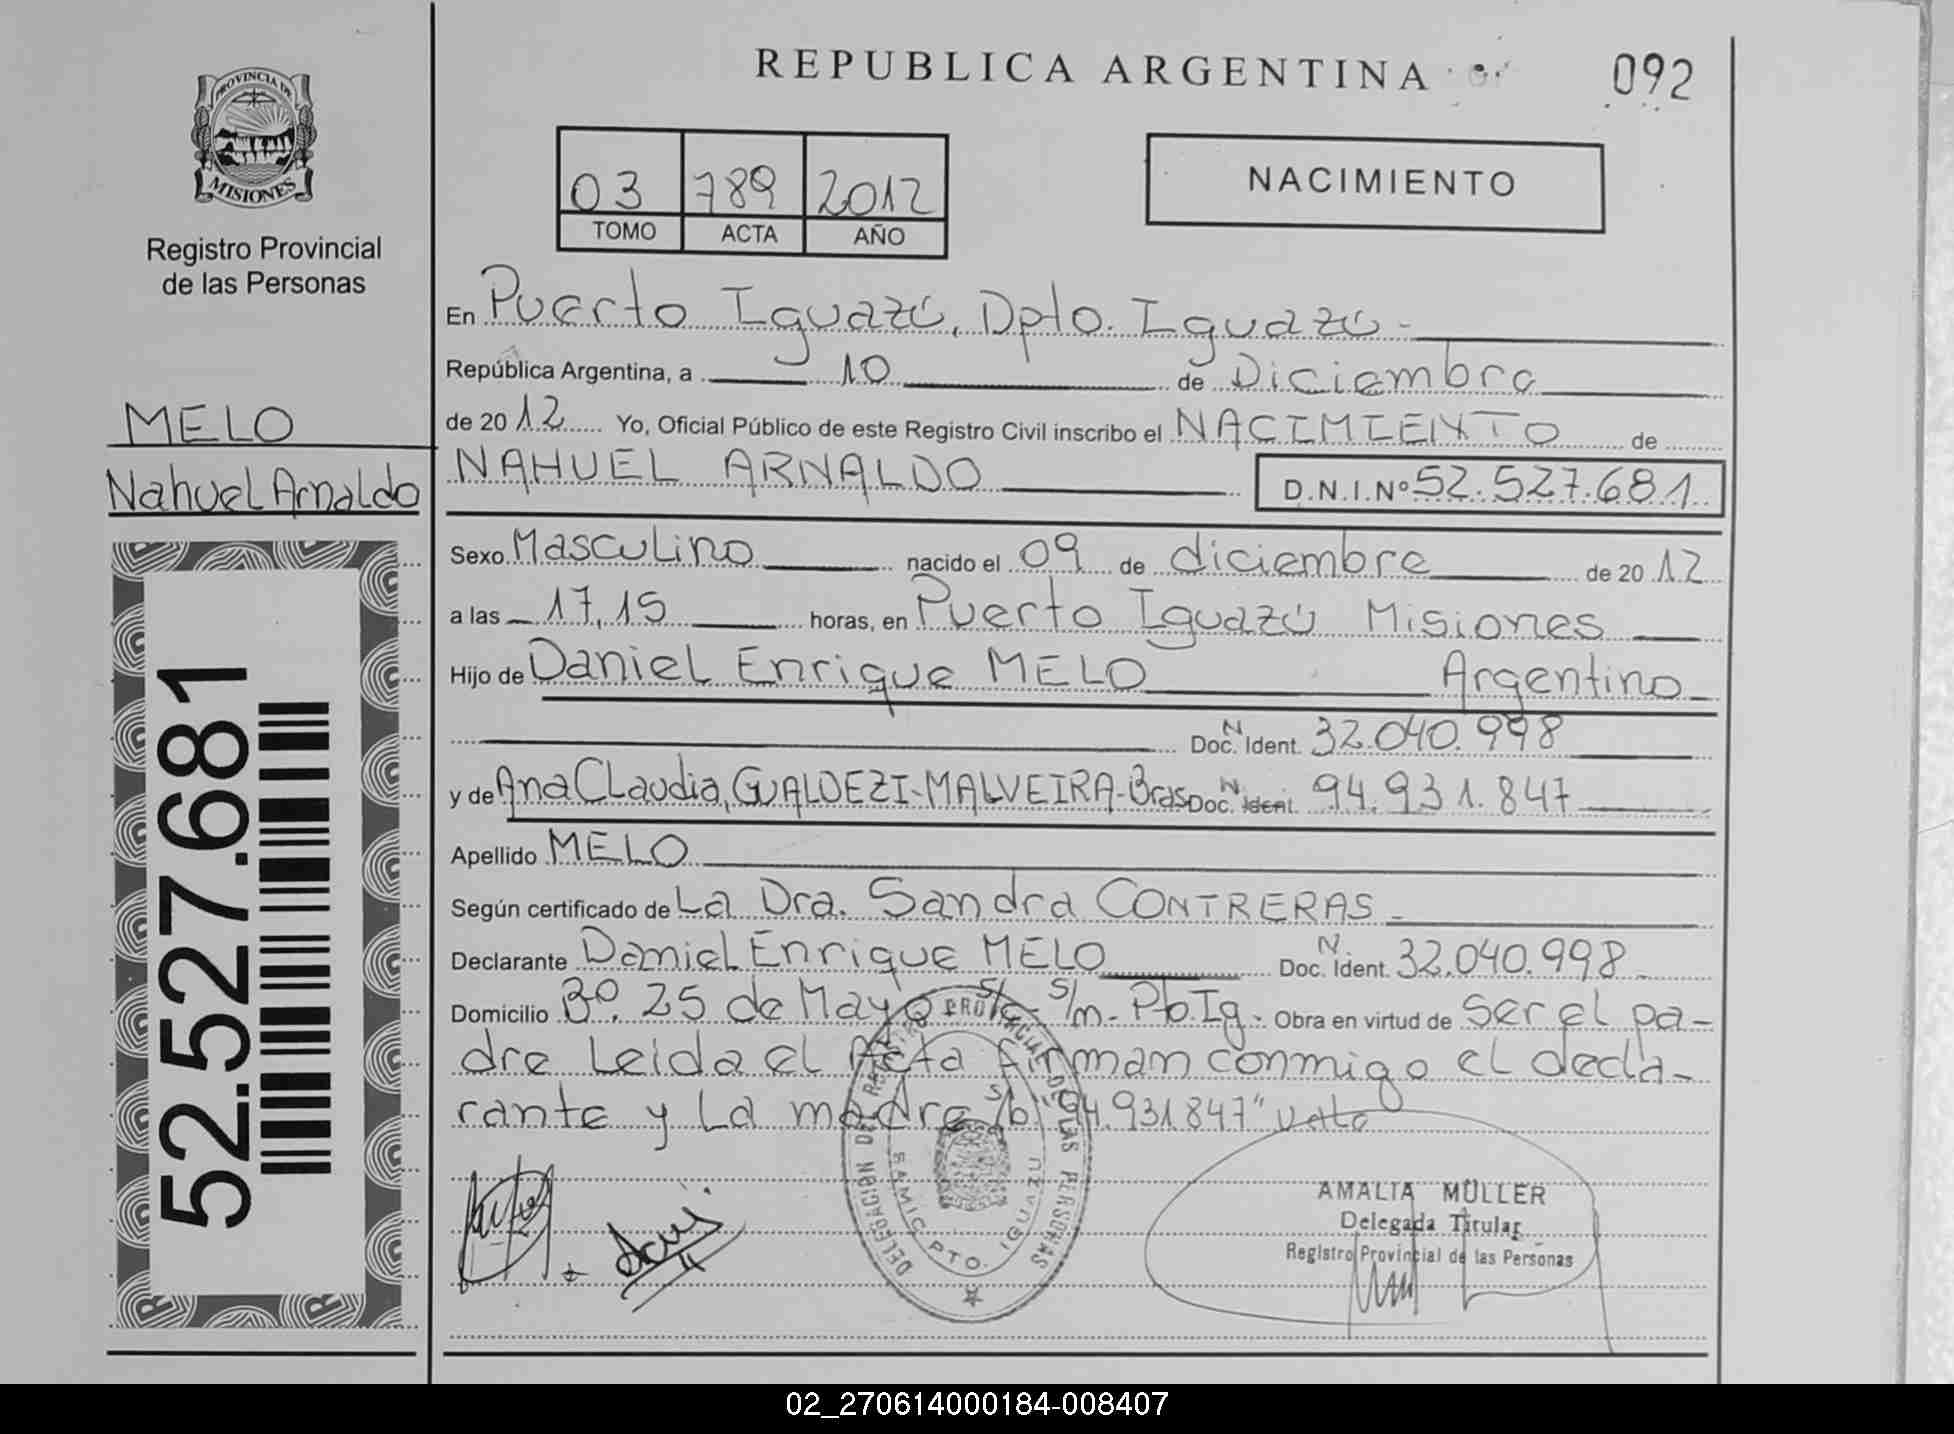 REPUBLICA ARGENTINA
092
PROVINCIA DE
MISIONES
Registro Provincial
de las Personas
MELO
Nahuel Arnaldo
52.527.681
03 789 2012
TOMO ACTA AÑO
NACIMIENTO
En Puerto Iguazú, Dpto. Iguazú -
República Argentina, a 10 de Diciembre
de 20 12 Yo, Oficial Público de este Registro Civil inscribo el NACIMIENTO de
NAHUEL ARNALDO D.N.I.Nº 52.527.681
Sexo Masculino nacido el 09 de diciembre de 20 12
a las 17,15 horas, en Puerto Iguazú Misiones
Hijo de Daniel Enrique MELO Argentino
Doc. N. Ident. 32.040.998
y de Ana Claudia, GUALDEZI-MALVEIRA-Bras Doc. N. Ident. 94.931.847
Apellido MELO
Según certificado de La Dra. Sandra CONTRERAS -
Declarante Daniel Enrique MELO Doc. N. Ident. 32.040.998
Domicilio Bº. 25 de Mayo s/c- s/n- Pto. Ig- Obra en virtud de ser el pa-
dre Leida el Acta firman conmigo el decla-
rante y La madre s/b "94.931.847" vale
DELEGACION DEL REGISTRO PROVINCIAL DE LAS PERSONAS
SAMIC PTO. IGUAZU
AMALIA MÜLLER
Delegada Titular
Registro Provincial de las Personas
02_270614000184-008407